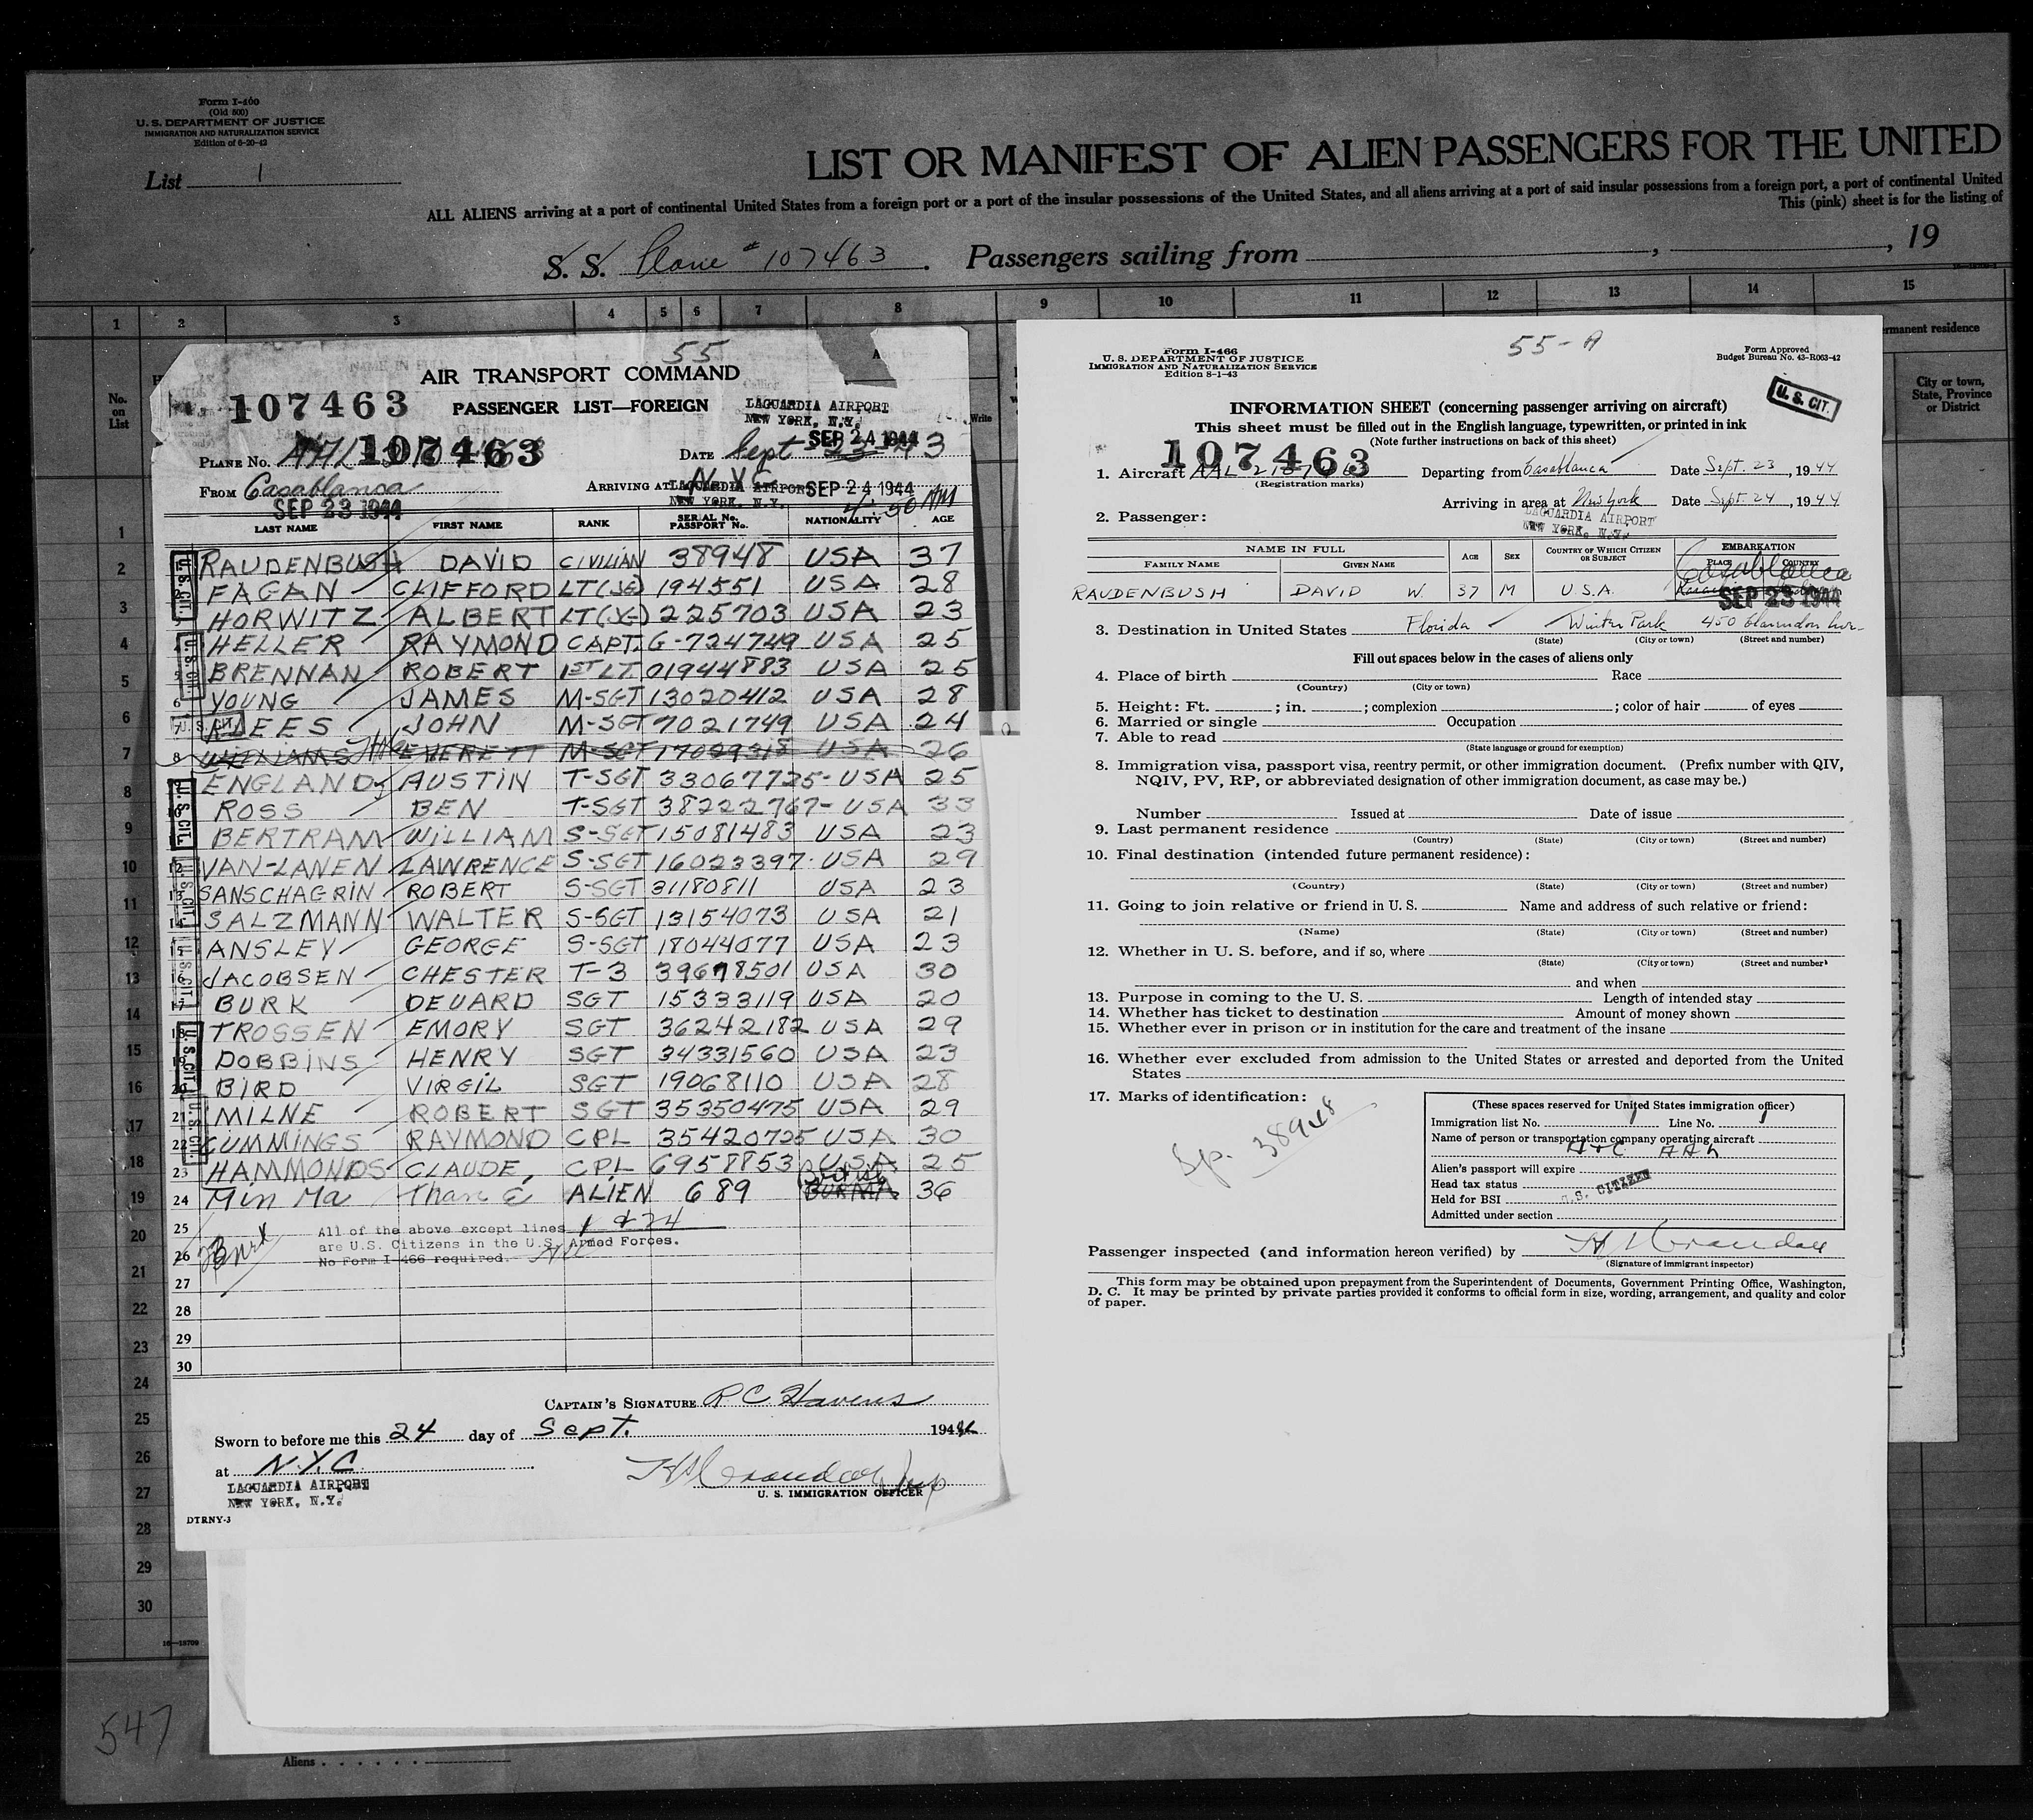 Form I-400
(Old 500)
U. S. DEPARTMENT OF JUSTICE
IMMIGRATION AND NATURALIZATION SERVICE
Edition of 6-20-42
List 1
LIST OR MANIFEST OF ALIEN PASSENGERS FOR THE UNITED
ALL ALIENS arriving at a port of continental United States from a foreign port or a port of the insular possessions of the United States, and all aliens arriving at a port of said insular possessions from a foreign port, a port of continental United
This (pink) sheet is for the listing of
S. S. Plane # 107463 . Passengers sailing from , , 19
1 2 3 4 5 6 7 8 9 10 11 12 13 14 15
No. on List
permanent residence
City or town, State, Province or District
55
AIR TRANSPORT COMMAND
107463 PASSENGER LIST—FOREIGN
LAGUARDIA AIRPORT
NEW YORK, N.Y.
SEP 24 1944
PLANE NO. 107463 DATE Sept
FROM Casablanca ARRIVING AT N.Y.C. LAGUARDIA AIRPORT NEW YORK, N.Y. SEP 24 1944
SEP 23 1944 4:50 AM
LAST NAME FIRST NAME RANK SERIAL No. PASSPORT No. NATIONALITY AGE
RAUDENBUSH DAVID CIVILIAN 38948 USA 37
FAGAN CLIFFORD LT(JG) 194551 USA 28
HORWITZ ALBERT LT(JG) 225703 USA 23
4 HELLER RAYMOND CAPT. G-724749 USA 25
5 BRENNAN ROBERT 1ST LT. 01944883 USA 25
6 YOUNG JAMES M-SGT 13020412 USA 28
7 LEES JOHN M-SGT 7021749 USA 24
8 WILLIAMS EVERETT M-SGT 17029318 USA 26
ENGLAND, AUSTIN T-SGT 33067725- USA 25
10 ROSS BEN T-SGT 38222767- USA 33
BERTRAM WILLIAM S-SGT 15081483 USA 23
12 VAN-LANEN LAWRENCE S-SGT 16023397 USA 29
13 SANSCHAGRIN ROBERT S-SGT 31180811 USA 23
14 SALZMANN WALTER S-SGT 13154073 USA 21
15 ANSLEY GEORGE S-SGT 18044077 USA 23
16 JACOBSEN CHESTER T-3 39678501 USA 30
17 BURK DEUARD SGT 15333119 USA 20
18 TROSSEN EMORY SGT 36242182 USA 29
19 DOBBINS HENRY SGT 34331560 USA 23
20 BIRD VIRGIL SGT 19068110 USA 28
21 MILNE ROBERT SGT 35350475 USA 29
22 CUMMINGS RAYMOND CPL 35420725 USA 30
23 HAMMONDS CLAUDE, CPL 6958853 USA 25
24 Min Ma Than E ALIEN 689 British BURMA 36
25 All of the above except lines 1 & 24
are U.S. Citizens in the U.S. Armed Forces.
26 No Form I-466 required.
27
28
29
30
CAPTAIN'S SIGNATURE R C Havens
Sworn to before me this 24 day of Sept. 1944
at N.Y.C.
LAGUARDIA AIRPORT
NEW YORK, N.Y.
U. S. IMMIGRATION OFFICER
DTRNY-3
Form I-466
U. S. DEPARTMENT OF JUSTICE
IMMIGRATION AND NATURALIZATION SERVICE
Edition 8-1-43
55-A
Form Approved
Budget Bureau No. 43-R063-42
U. S. CIT.
INFORMATION SHEET (concerning passenger arriving on aircraft)
This sheet must be filled out in the English language, typewritten, or printed in ink
(Note further instructions on back of this sheet)
1. Aircraft 107463 Departing from Casablanca Date Sept. 23, 1944
(Registration marks)
Arriving in area at New York Date Sept 24, 1944
2. Passenger:
LAGUARDIA AIRPORT
NEW YORK, N.Y.
NAME IN FULL AGE SEX COUNTRY OF WHICH CITIZEN OR SUBJECT EMBARKATION
FAMILY NAME GIVEN NAME PLACE COUNTRY
Casablanca
RAUDENBUSH DAVID W. 37 M U.S.A. SEP 23 1944
3. Destination in United States Florida Winter Park 450 Clarendon Ave.
(State) (City or town) (Street and number)
Fill out spaces below in the cases of aliens only
4. Place of birth Race
(Country) (City or town)
5. Height: Ft. ; in. ; complexion ; color of hair of eyes
6. Married or single Occupation
7. Able to read
(State language or ground for exemption)
8. Immigration visa, passport visa, reentry permit, or other immigration document. (Prefix number with QIV,
NQIV, PV, RP, or abbreviated designation of other immigration document, as case may be.)
Number Issued at Date of issue
9. Last permanent residence
(Country) (State) (City or town) (Street and number)
10. Final destination (intended future permanent residence):
(Country) (State) (City or town) (Street and number)
11. Going to join relative or friend in U. S. Name and address of such relative or friend:
(Name) (State) (City or town) (Street and number)
12. Whether in U. S. before, and if so, where
(State) (City or town) (Street and number)
and when
13. Purpose in coming to the U. S. Length of intended stay
14. Whether has ticket to destination Amount of money shown
15. Whether ever in prison or in institution for the care and treatment of the insane
16. Whether ever excluded from admission to the United States or arrested and deported from the United
States
17. Marks of identification:
Sp. 38948
(These spaces reserved for United States immigration officer)
Immigration list No. 1 Line No. 1
Name of person or transportation company operating aircraft
ATC AAL
Alien's passport will expire
Head tax status
Held for BSI U.S. CITIZEN
Admitted under section
Passenger inspected (and information hereon verified) by
(Signature of immigrant inspector)
This form may be obtained upon prepayment from the Superintendent of Documents, Government Printing Office, Washington,
D. C. It may be printed by private parties provided it conforms to official form in size, wording, arrangement, and quality and color
of paper.
16—18709
547
Aliens